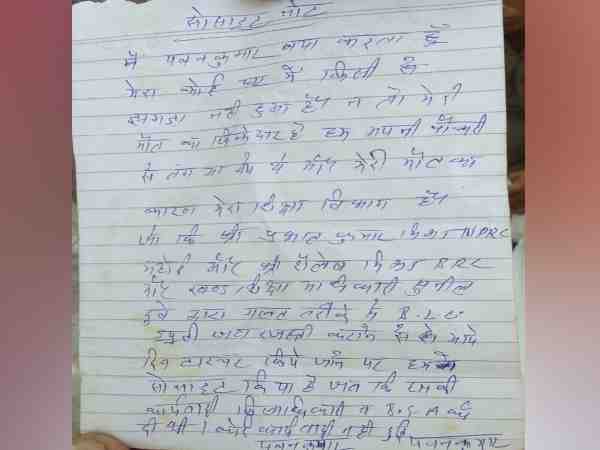 सोसाइट नोट
मैं पवन कुमार बया करता हूँ
मेरा कोई घर में किसी से
झगड़ा नही हुआ है न तो मेरी
मौत का जिम्मेदार है हम अपनी नौकरी
से तंग आ गये थे और मेरी मौत का
कारण मेरा शिक्षा विभाग है
जो कि श्री प्रभात कुमार मिश्रा NPRC
महोई और श्री शैलेष मिश्रा BRC
और खण्ड शिक्षा अधिकारी सुनील
दुबे द्वारा गलत तरीके से B.L.O.
डयूटी जबरजस्ती कराने
किये जाने पर हमने
सोसाइट किया है जब कि इसकी
जानकारी जिलाधिकारी व B.S.A को
दी थी। कोई कार्यवाही नही हुई
पवन कुमार पवन कुमार